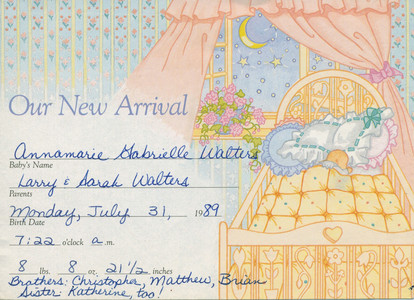 Our New Arrival
Annamarie Gabrielle Walters
Baby's Name
Larry & Sarah Walters
Parents
Monday, July 31, 1989
Birth Date
7:22 o'clock a.m.
8 lbs. 8 oz. 21 1/2 inches
Brothers: Christopher, Matthew, Brian
Sister: Katherine, too!